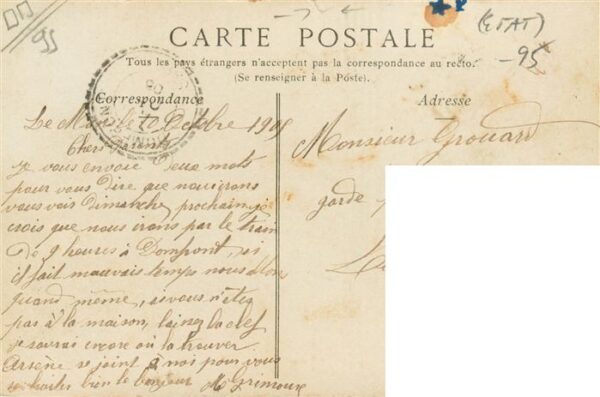 (ETAT)
95
-95
CARTE POSTALE
Tous les pays étrangers n'acceptent pas la correspondance au recto.
(Se renseigner à la Poste).
Correspondance
Adresse
Le 7 Octobre 1905
Chers Parents
Je vous envoie deux mots
pour vous dire que nous irons
vous voir dimanche prochain, je
crois que nous irons par le train
de 9 heures à Domfront, si
il fait mauvais temps nous
quand même, si vous n'êtes
pas à la maison, laissez la clef
je saurai encore où la trouver
Arsène se joint à moi pour vous
bien le bonjour M Grimoux
Monsieur Grouard
garde